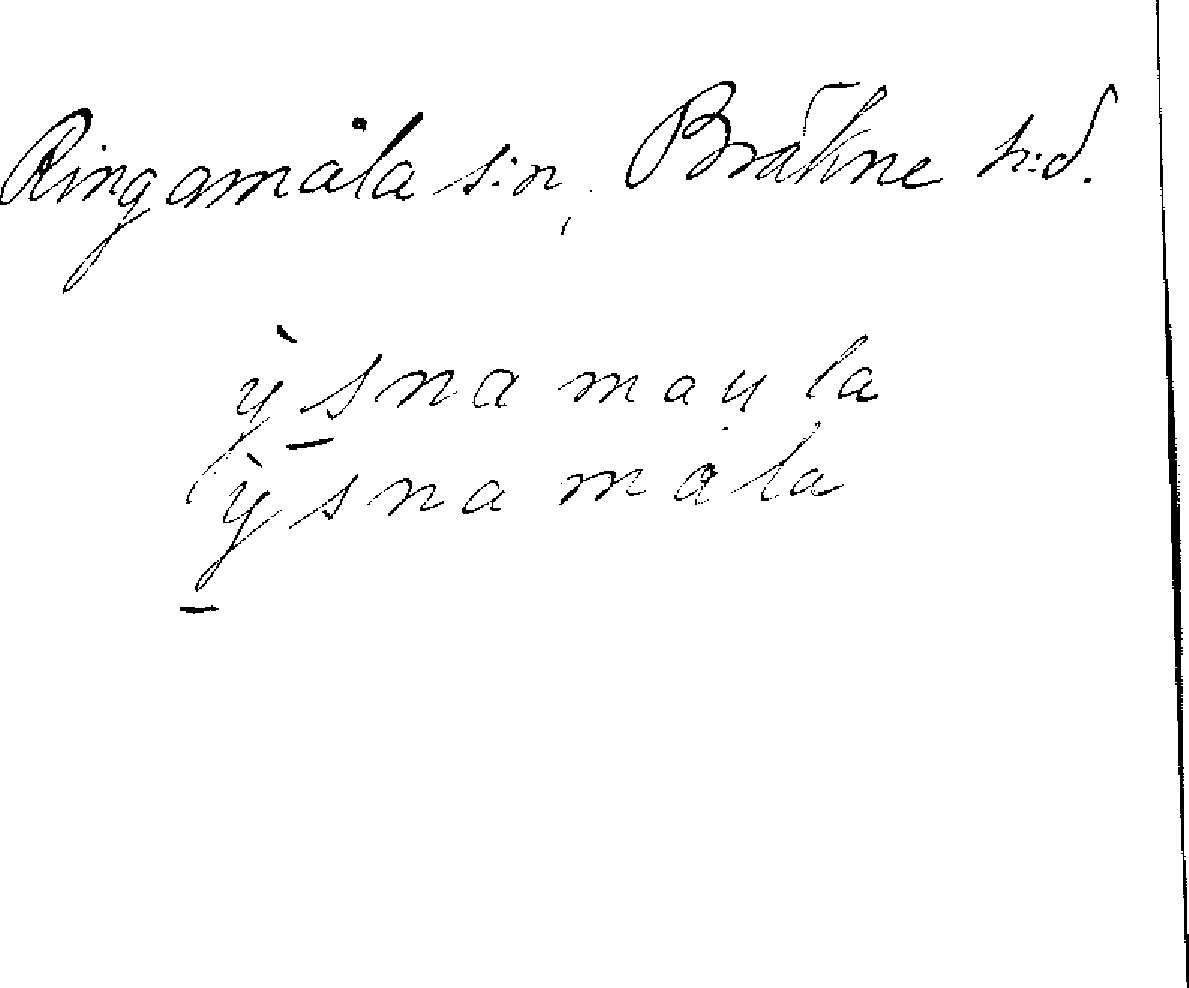 Ringamåla s:n, Bräkne h:d.
ỳsna mau̩la
ỳsna måla